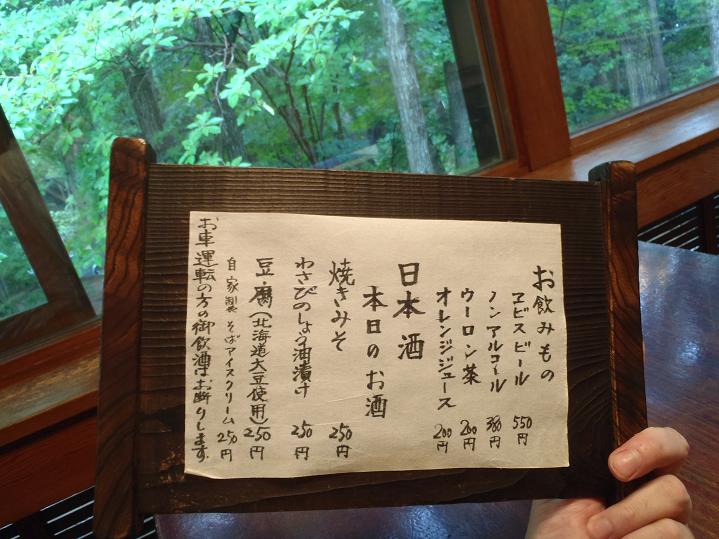 お飲みもの
ヱビスビール 550円
ノンアルコール 380円
ウーロン茶 200円
オレンジジュース 200円
日本酒
本日のお酒
焼きみそ 250円
わさびのしょう油漬け 250円
豆腐(北海道大豆使用) 250円
自家製そばアイスクリーム 250円
お車運転の方の御飲酒はお断りします